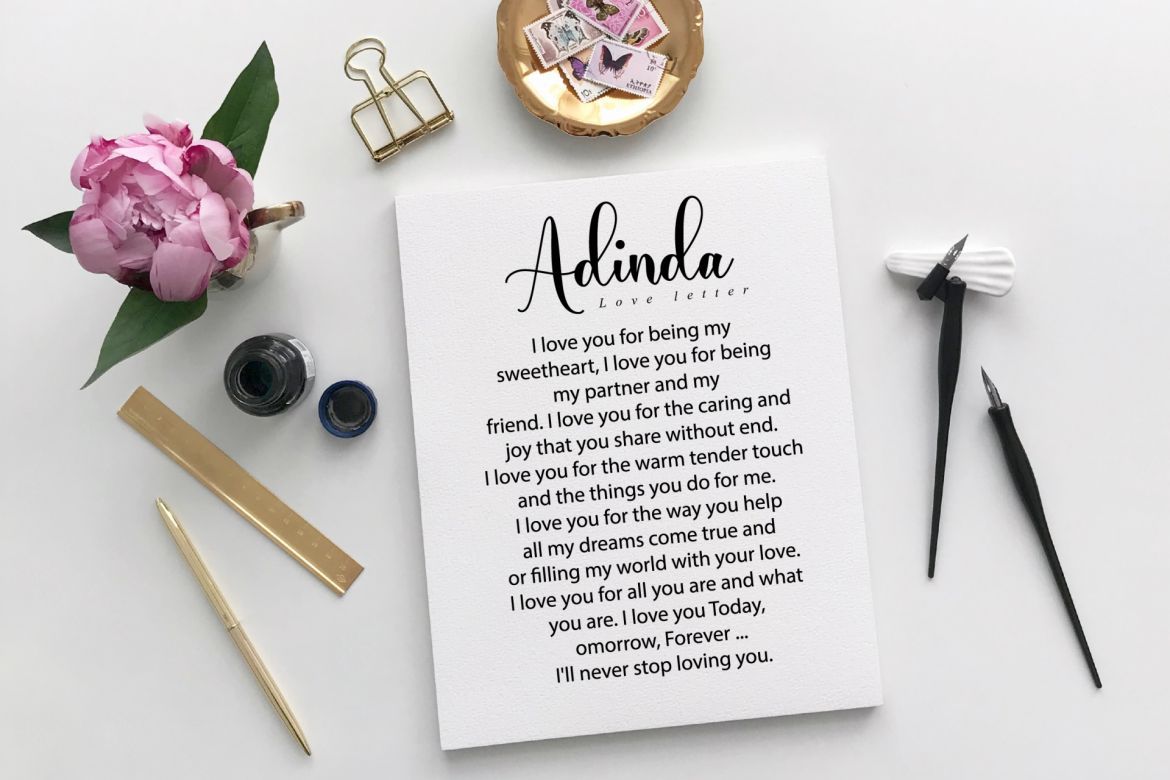 ETHIOPIA
Adinda
Love letter
I love you for being my
sweetheart, I love you for being
my partner and my
friend. I love you for the caring and
joy that you share without end.
I love you for the warm tender touch
and the things you do for me.
I love you for the way you help
all my dreams come true and
or filling my world with your love.
I love you for all you are and what
you are. I love you Today,
omorrow, Forever ...
I'll never stop loving you.